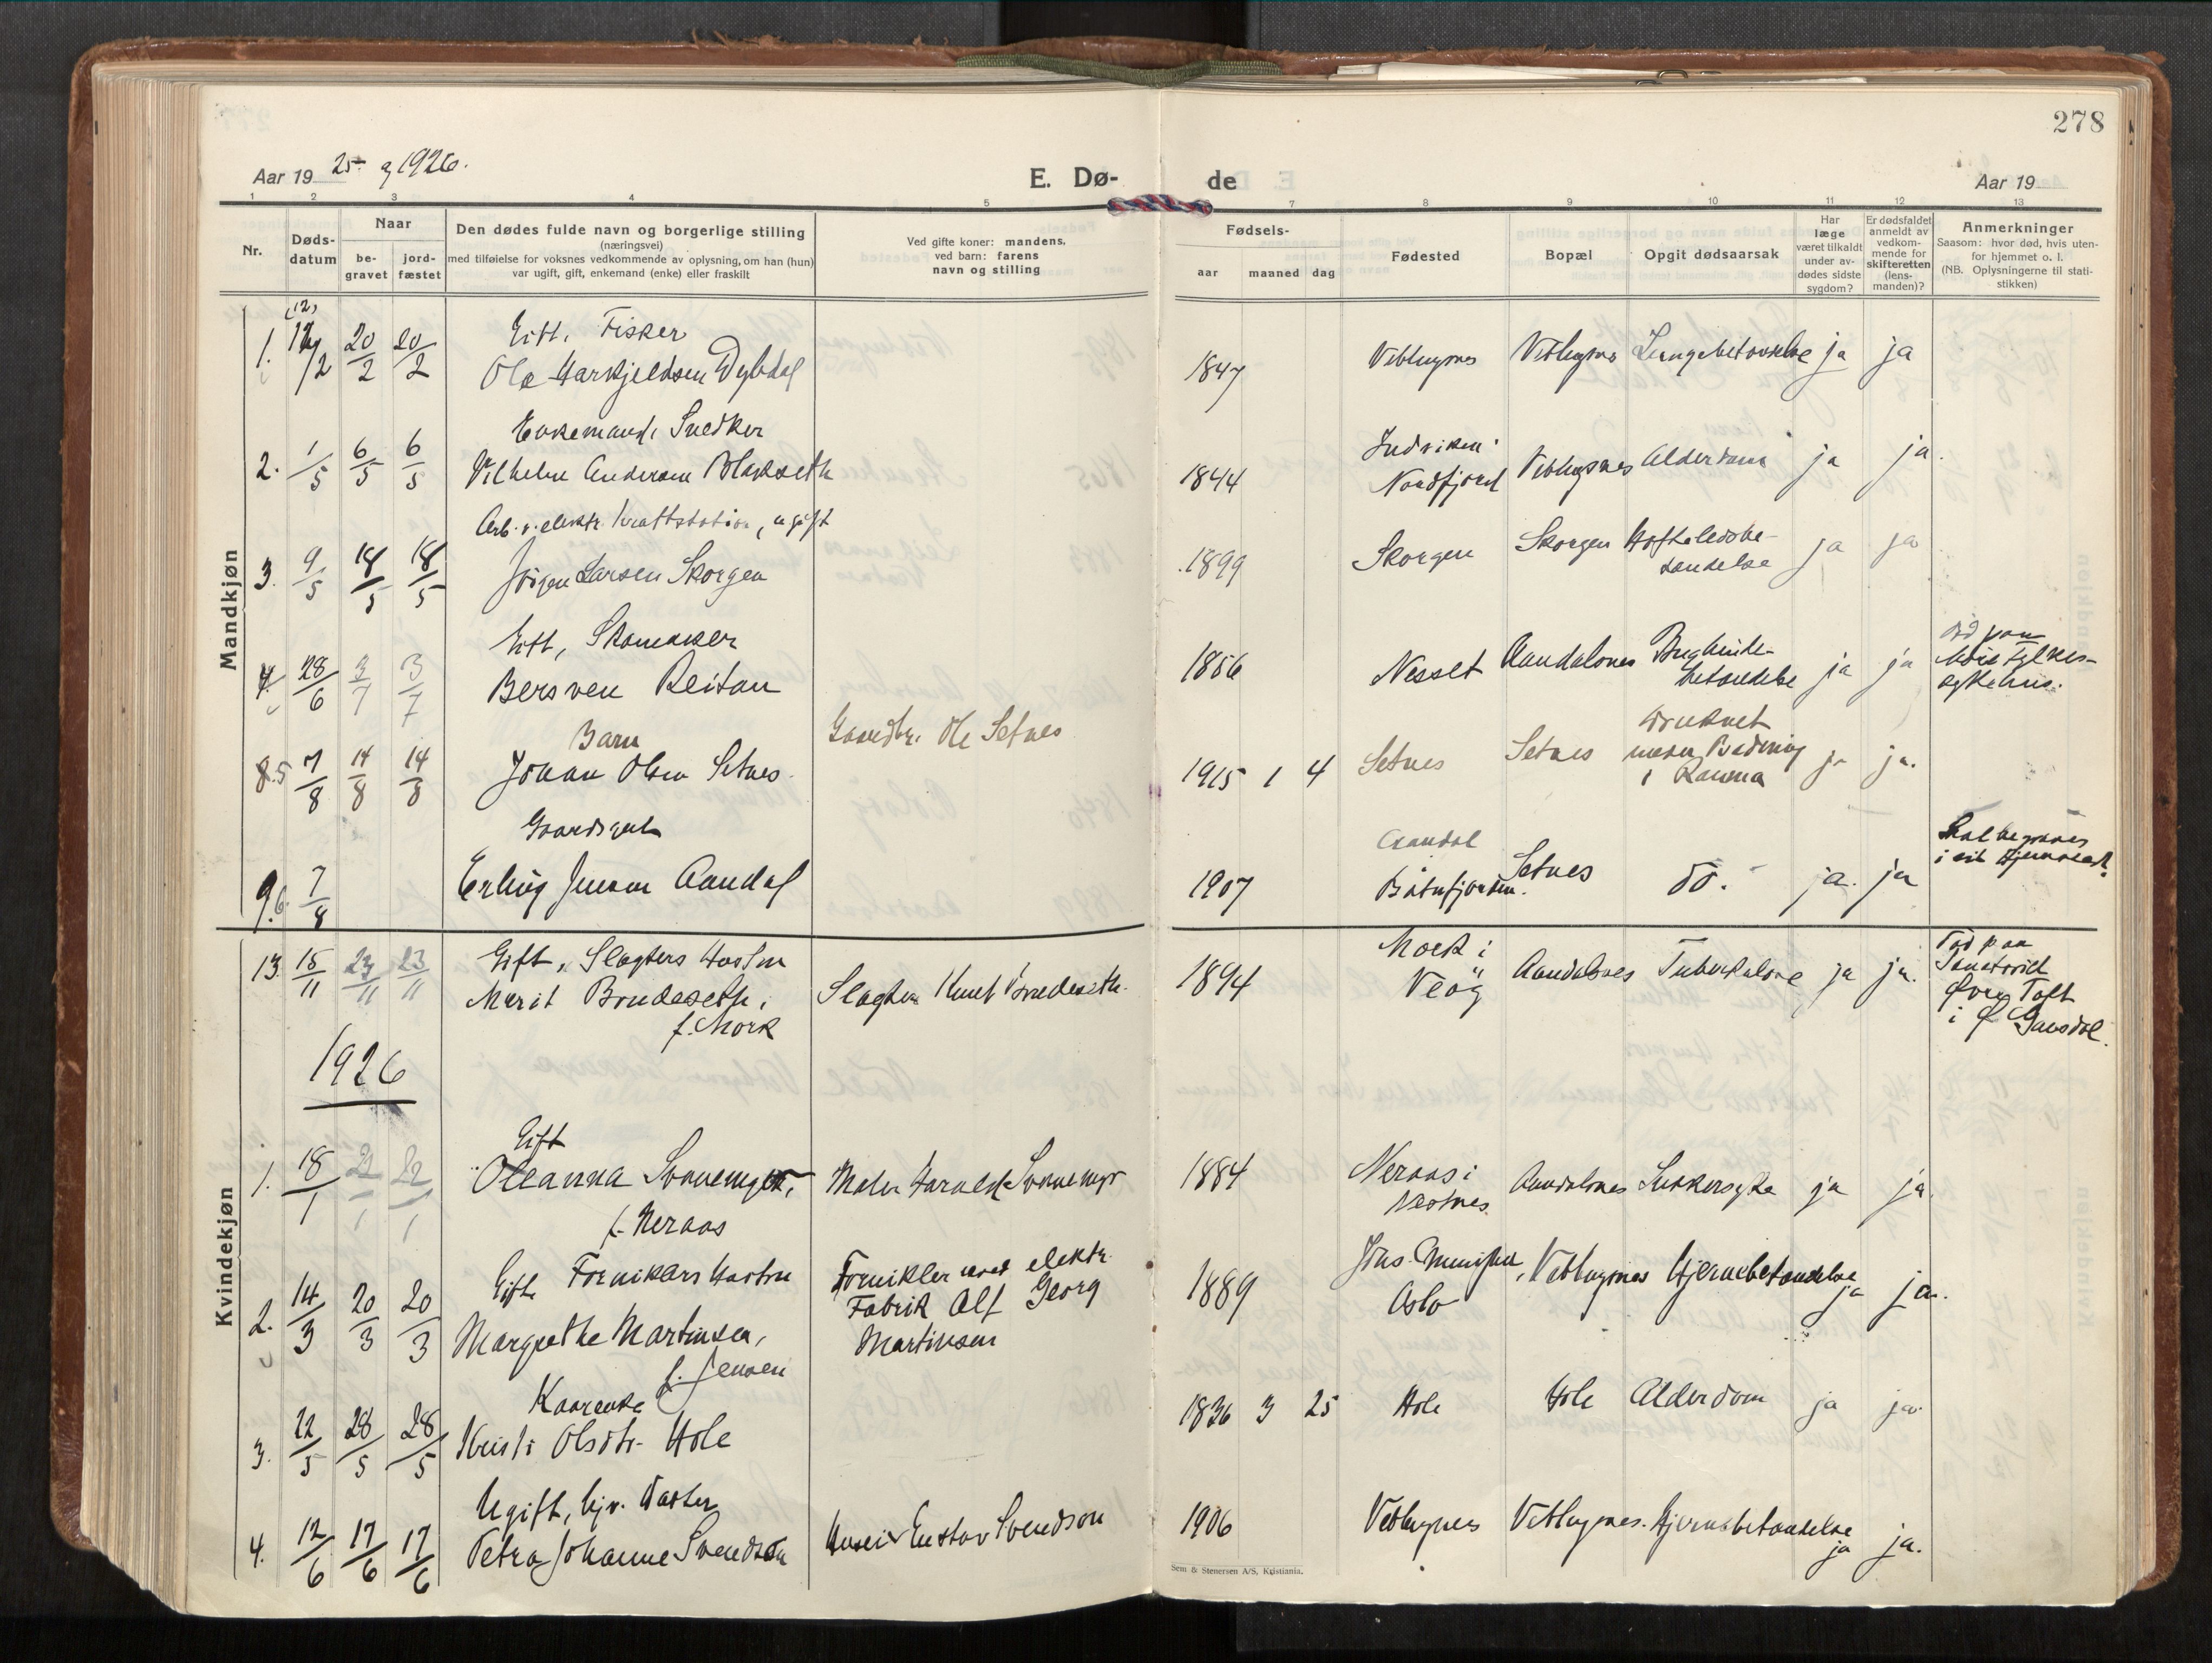 278
Aar 19 25 og 1926.
E. Dø- de
Aar 19
1 2 3 4 5 7 8 9 10 11 12 13
Nr.
Døds-
datum
Naar
be-
gravet
jord-
fæstet
Den dødes fulde navn og borgerlige stilling
(næringsvei)
med tilføielse for voksnes vedkommende av oplysning, om han (hun)
var ugift, gift, enkemand (enke) eller fraskilt
Ved gifte koner: mandens,
ved barn: farens
navn og stilling
Fødsels-
aar maaned dag
Fødested
Bopæl
Opgit dødsaarsak
Har
læge
været tilkaldt
under av-
dødes sidste
sygdom?
Er dødsfaldet
anmeldt av
vedkom-
mende for
skifteretten
(lens-
manden)?
Anmerkninger
Saasom: hvor død, hvis uten-
for hjemmet o. l.
(NB. Oplysningerne til stati-
stikken)
Mandkjøn
(12)
Gift. Fisker
1. 12/2 20/2 20/2 Ola Harkjeldsen Dybdal 1847 Veblugnes Veblugnes Lungebetændelse ja ja
Enkemand, Snedker
2. 1/5 6/5 6/5 Vilhelm Andersen Blakseth 1844 Indviken Nordfjord Veblugsnes Alderdom ja ja.
Arb. v. elektr. kraftstation, ugift
3. 9/5 18/5 18/5 Jörgen Larsen Skorgen 1899 Skorgen Skorgen Hofteledsbe-
tændelse ja ja
Gift, Skomaker
4. 28/6 3/7 3/7 Bersven Reitan 1856 Nesset Aandalsnes Bughinde-
betændelse ja ja
Död paa
Möre Fylkes-
sykehus.
Barn
8.5 7/8 14/8 14/8 Johan Olsen Setnes Gaardbr. Ole Setnes 1915 1 4 Setnes Setnes Druknet
under Badning
i Rauma ja ja.
Gaardsgut
9.6. 7/8 Erling Jensen Aandal 1907 Aandal
Båtnfjorden. Setnes do. ja. ja
Skal begraves
i sit Hjemsted.
Kvindekjøn
13 15/11 23/11 23/11 Gift, Slagters Hustru
Marit Brudeseth,
f. Mork
Slagter Knut Brudeseth. 1894 Mork i
Veöy Aandalsnes Tuberkulose ja ja.
Död paa
Sanatoriet
Øvre Toft
i Ø Gausdal.
1926
Gift
1. 18/1 22/1 22/1 Oleanna Svanemyr,
f. Neraas
Maler Harald Svanemyr 1884 Neraas i
Vestnes Aandalsnes Sukkersyke ja ja.
Gift Forniklers Hustru
2. 14/3 20/3 20/3 Margrethe Martinsen,
f. Jensen
Fornikler ved elektr.
Fabrik Alf Georg
Martinsen
1889 Oslo Veblugnes Hjernebetændelse ja ja.
Kaarenke
3. 22/5 28/5 28/5 Kristi Olsdtr. Hole 1836 3 25 Hole Hole Alderdom ja ja
Ugift, hjv. Datter
4. 12/6 17/6 17/6 Petra Johanne Svendson Gustav Svendson 1906 Veblugnes Veblugnes. Hjernebetændelse ja ja.
Sem & Stenersen A/S, Kristiania.